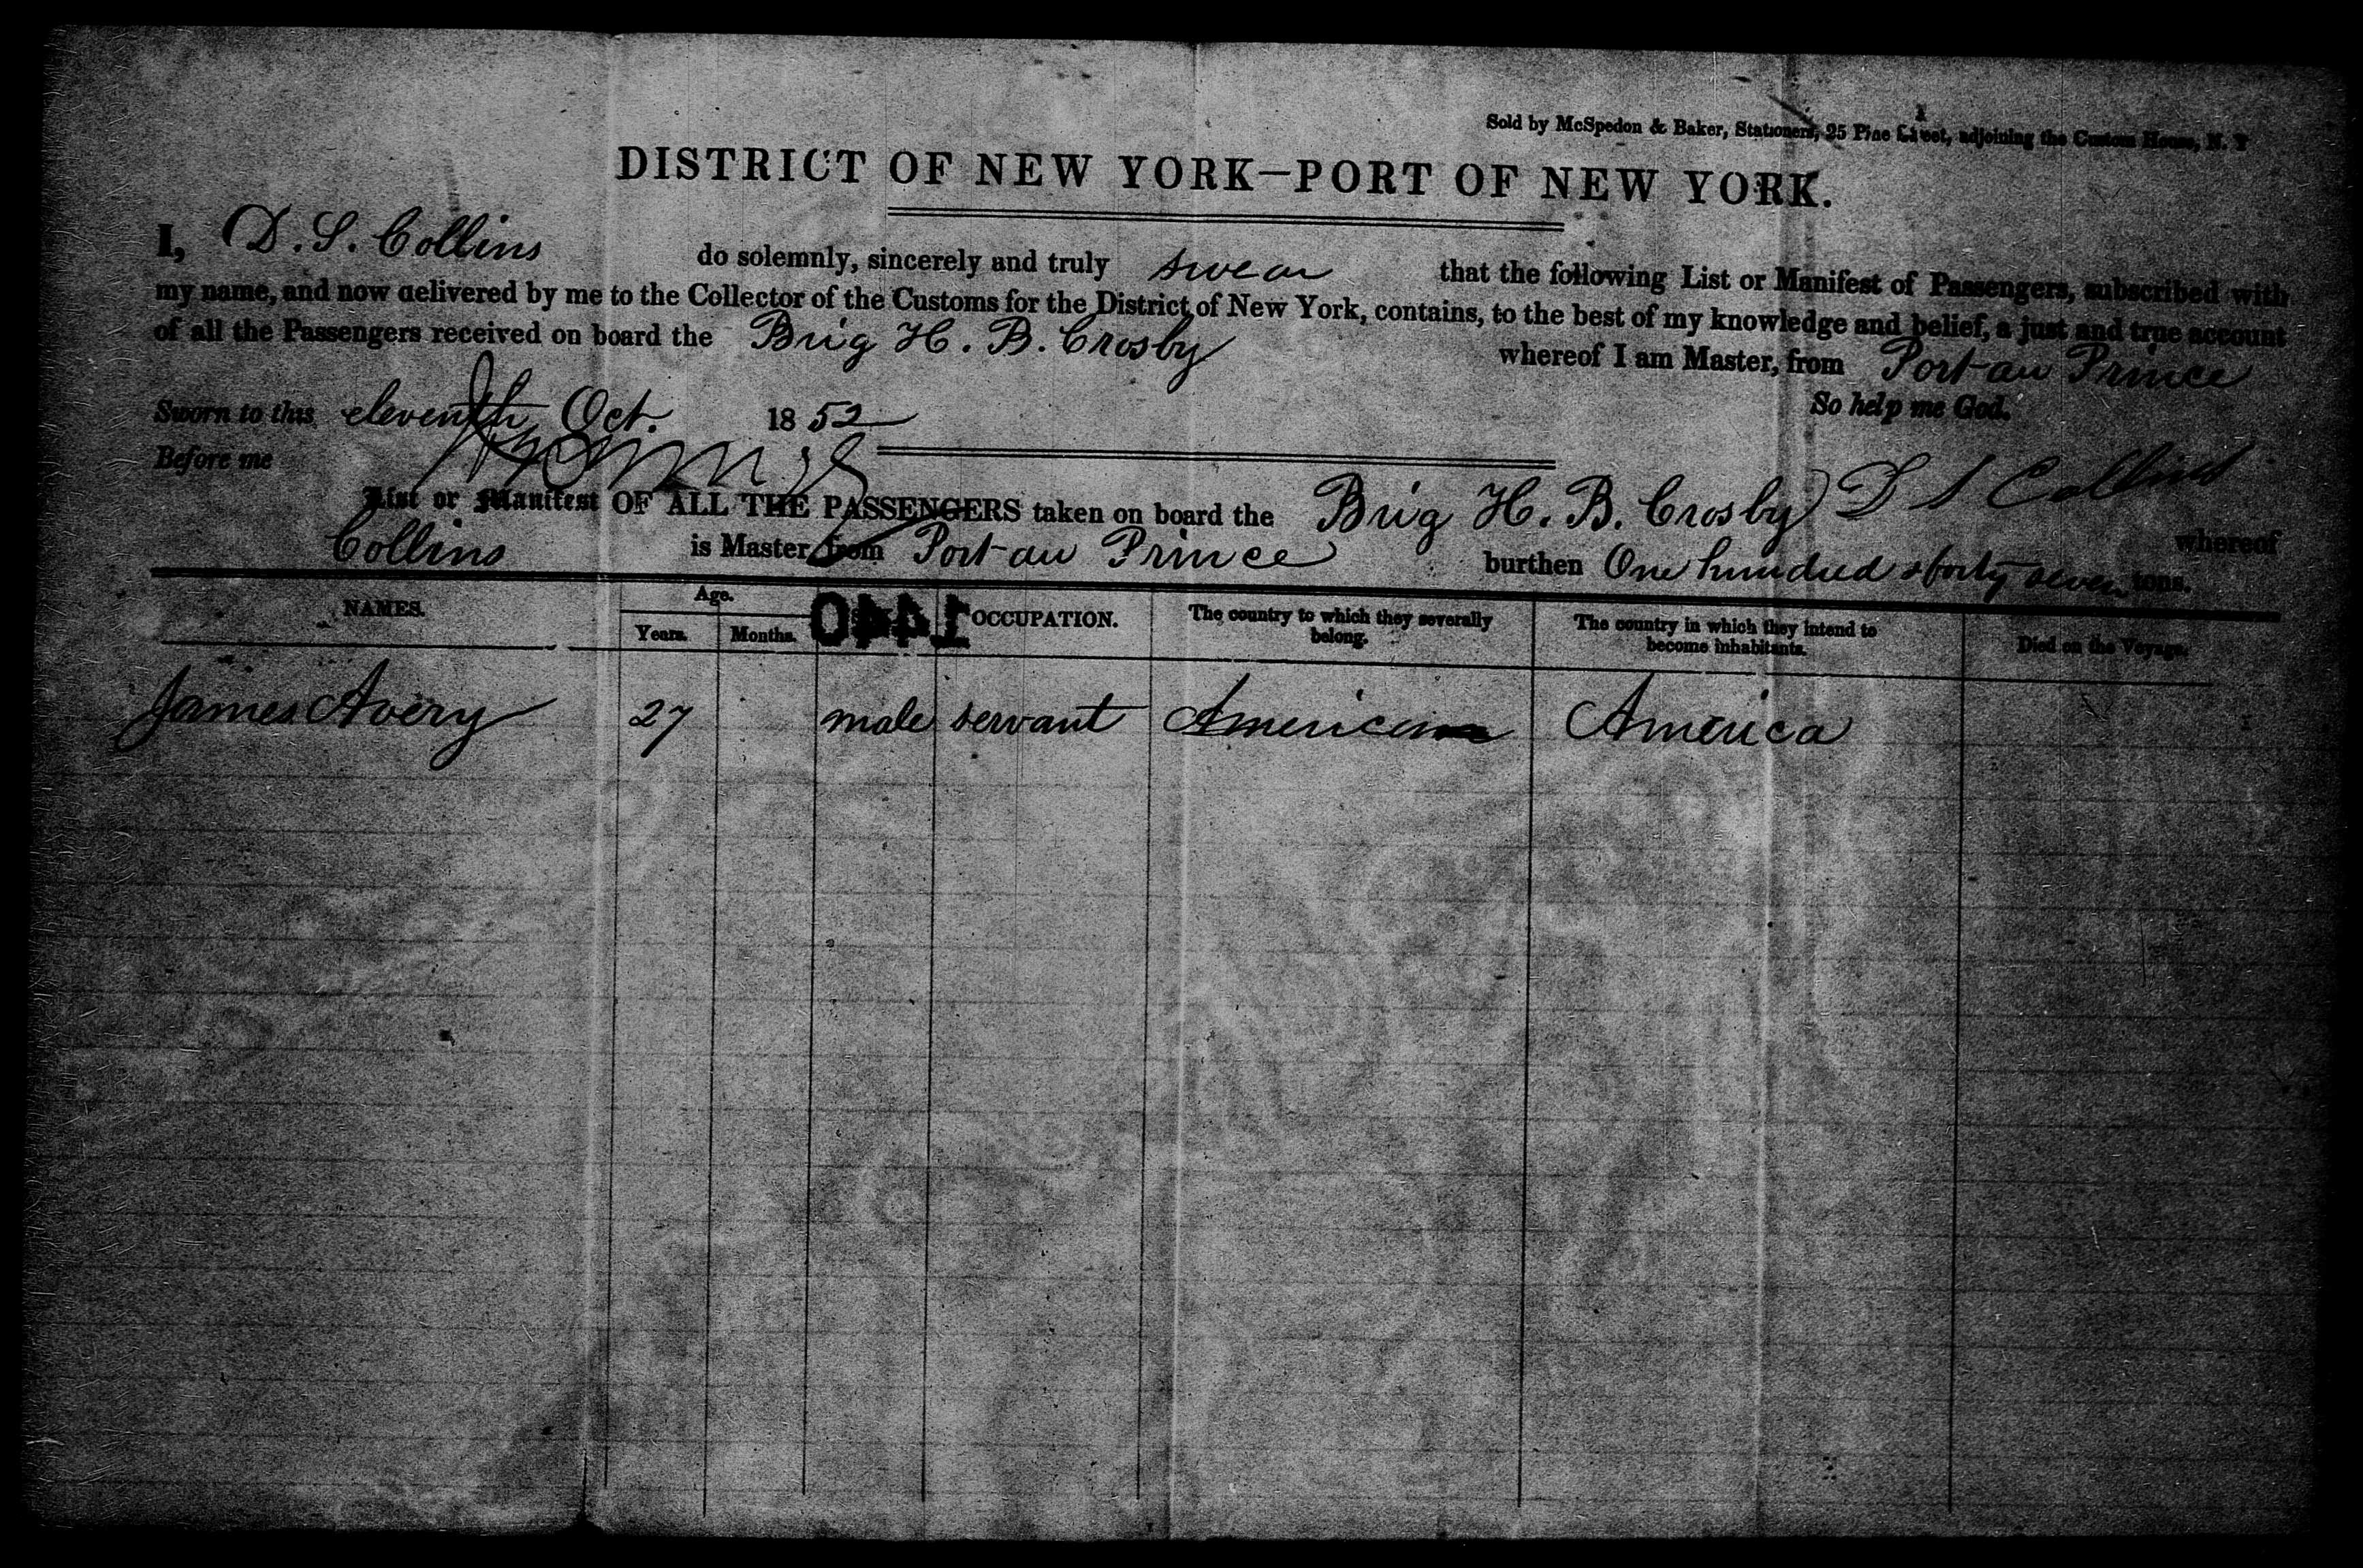 Sold by McSpedon & Baker, Stationers, 25 Pine Street, adjoining the Custom House, N. Y
DISTRICT OF NEW YORK—PORT OF NEW YORK.
I, D. S. Collins do solemnly, sincerely and truly swear that the following List or Manifest of Passengers, subscribed with
my name, and now delivered by me to the Collector of the Customs for the District of New York, contains, to the best of my knowledge and belief, a just and true account
of all the Passengers received on board the Brig H. B. Crosby whereof I am Master, from Port au Prince
Sworn to this eleventh Oct. 1852 So help me God.
Before me
D S Collins
List or Manifest OF ALL THE PASSENGERS taken on board the Brig H. B. Crosby whereof
Collins is Master, from Port au Prince burthen One hundred & forty seven tons.
NAMES. Age. Years. Months. 1440 OCCUPATION. The country to which they severally belong. The country in which they intend to become inhabitants. Died on the Voyage.
James Avery 27 male servant America America